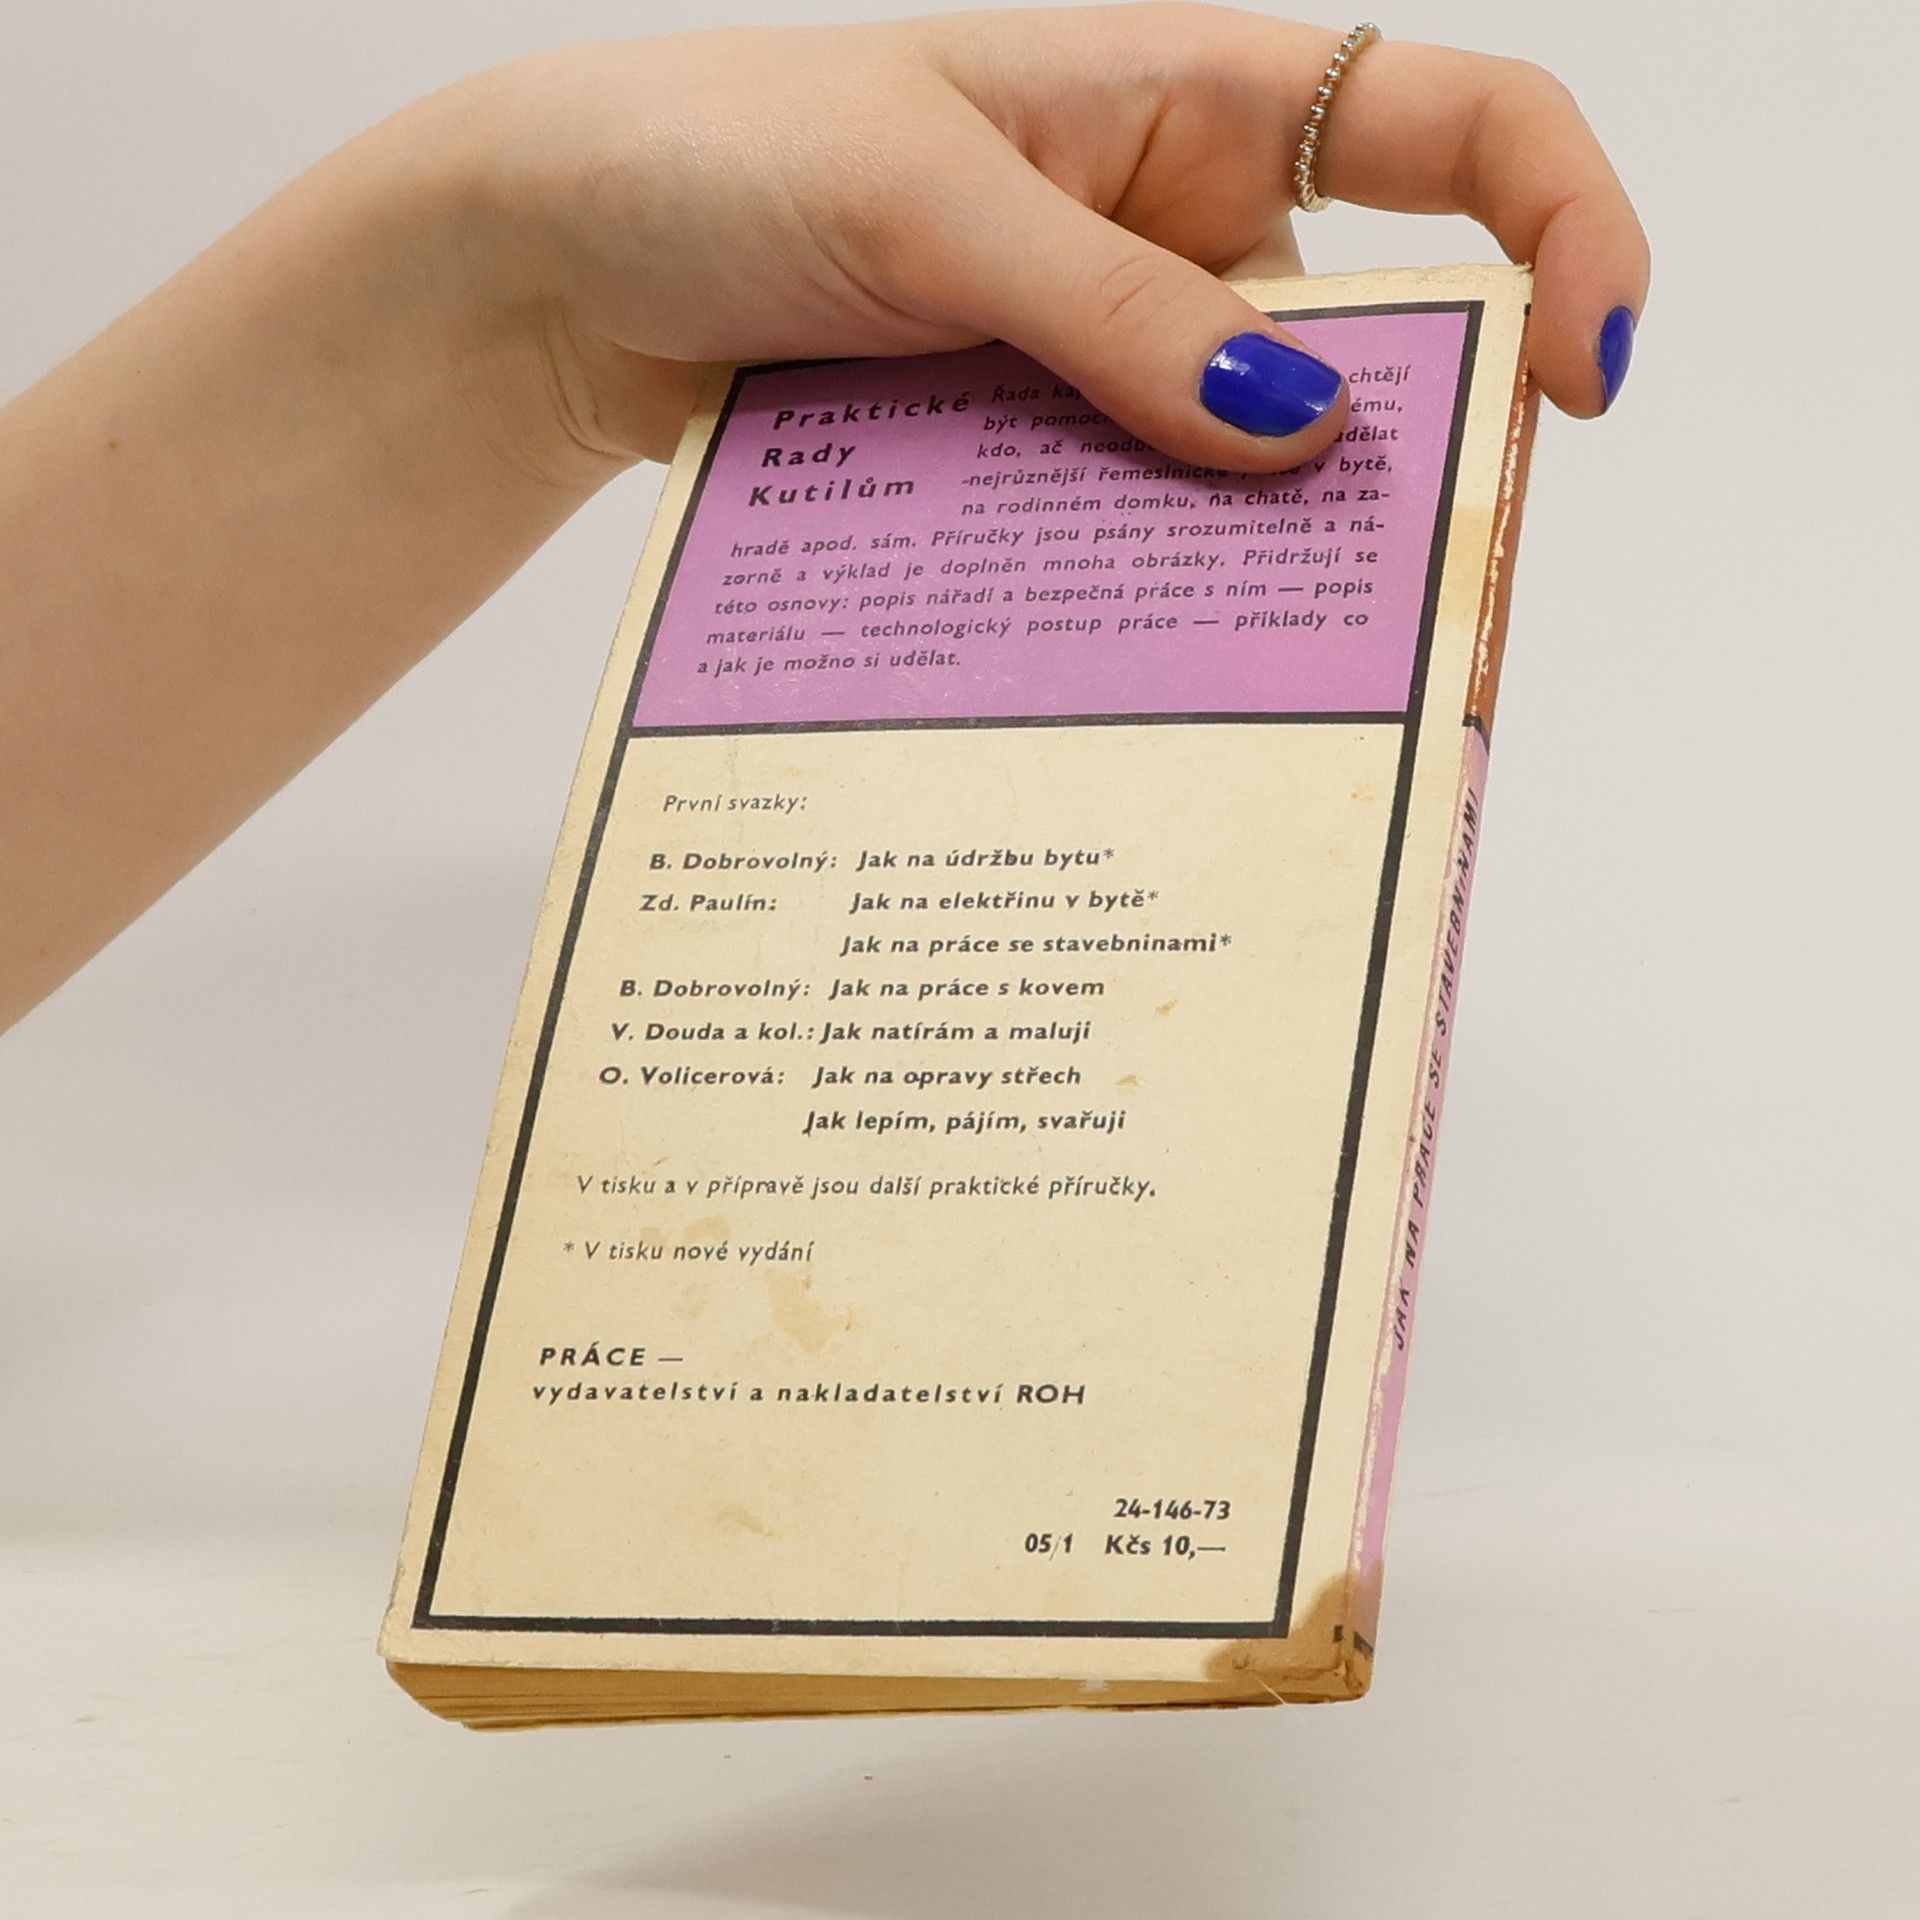 Praktické
Rady
Kutilům
Řada chtějí
být ému,
kdo, ač udělat
-nejrůznější řemeslnické v bytě,
na rodinném domku, na chatě, na za-
hradě apod. sám. Příručky jsou psány srozumitelně a ná-
zorně a výklad je doplněn mnoha obrázky. Přidržují se
této osnovy: popis nářadí a bezpečná práce s ním — popis
materiálu — technologický postup práce — příklady co
a jak je možno si udělat.
První svazky:
B. Dobrovolný: Jak na údržbu bytu*
Zd. Paulín: Jak na elektřinu v bytě*
Jak na práce se stavebninami*
B. Dobrovolný: Jak na práce s kovem
V. Douda a kol.: Jak natírám a maluji
O. Volicerová: Jak na opravy střech
Jak lepím, pájím, svařuji
V tisku a v přípravě jsou další praktické příručky.
* V tisku nové vydání
PRÁCE —
vydavatelství a nakladatelství ROH
24-146-73
05/1 Kčs 10,—
JAK NA PRÁCE SE STAVEBNINAMI